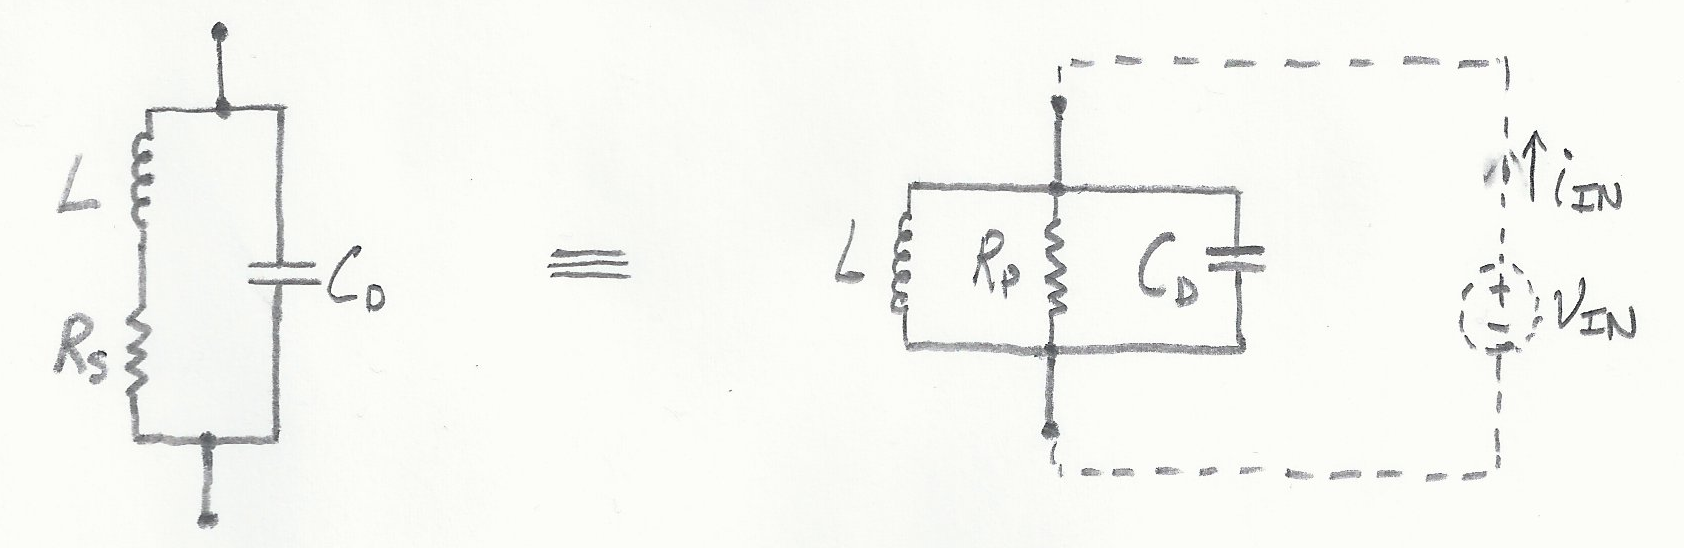 L
R_S
C_D
≡
L
R_P
C_D
i_IN
+
-
V_IN